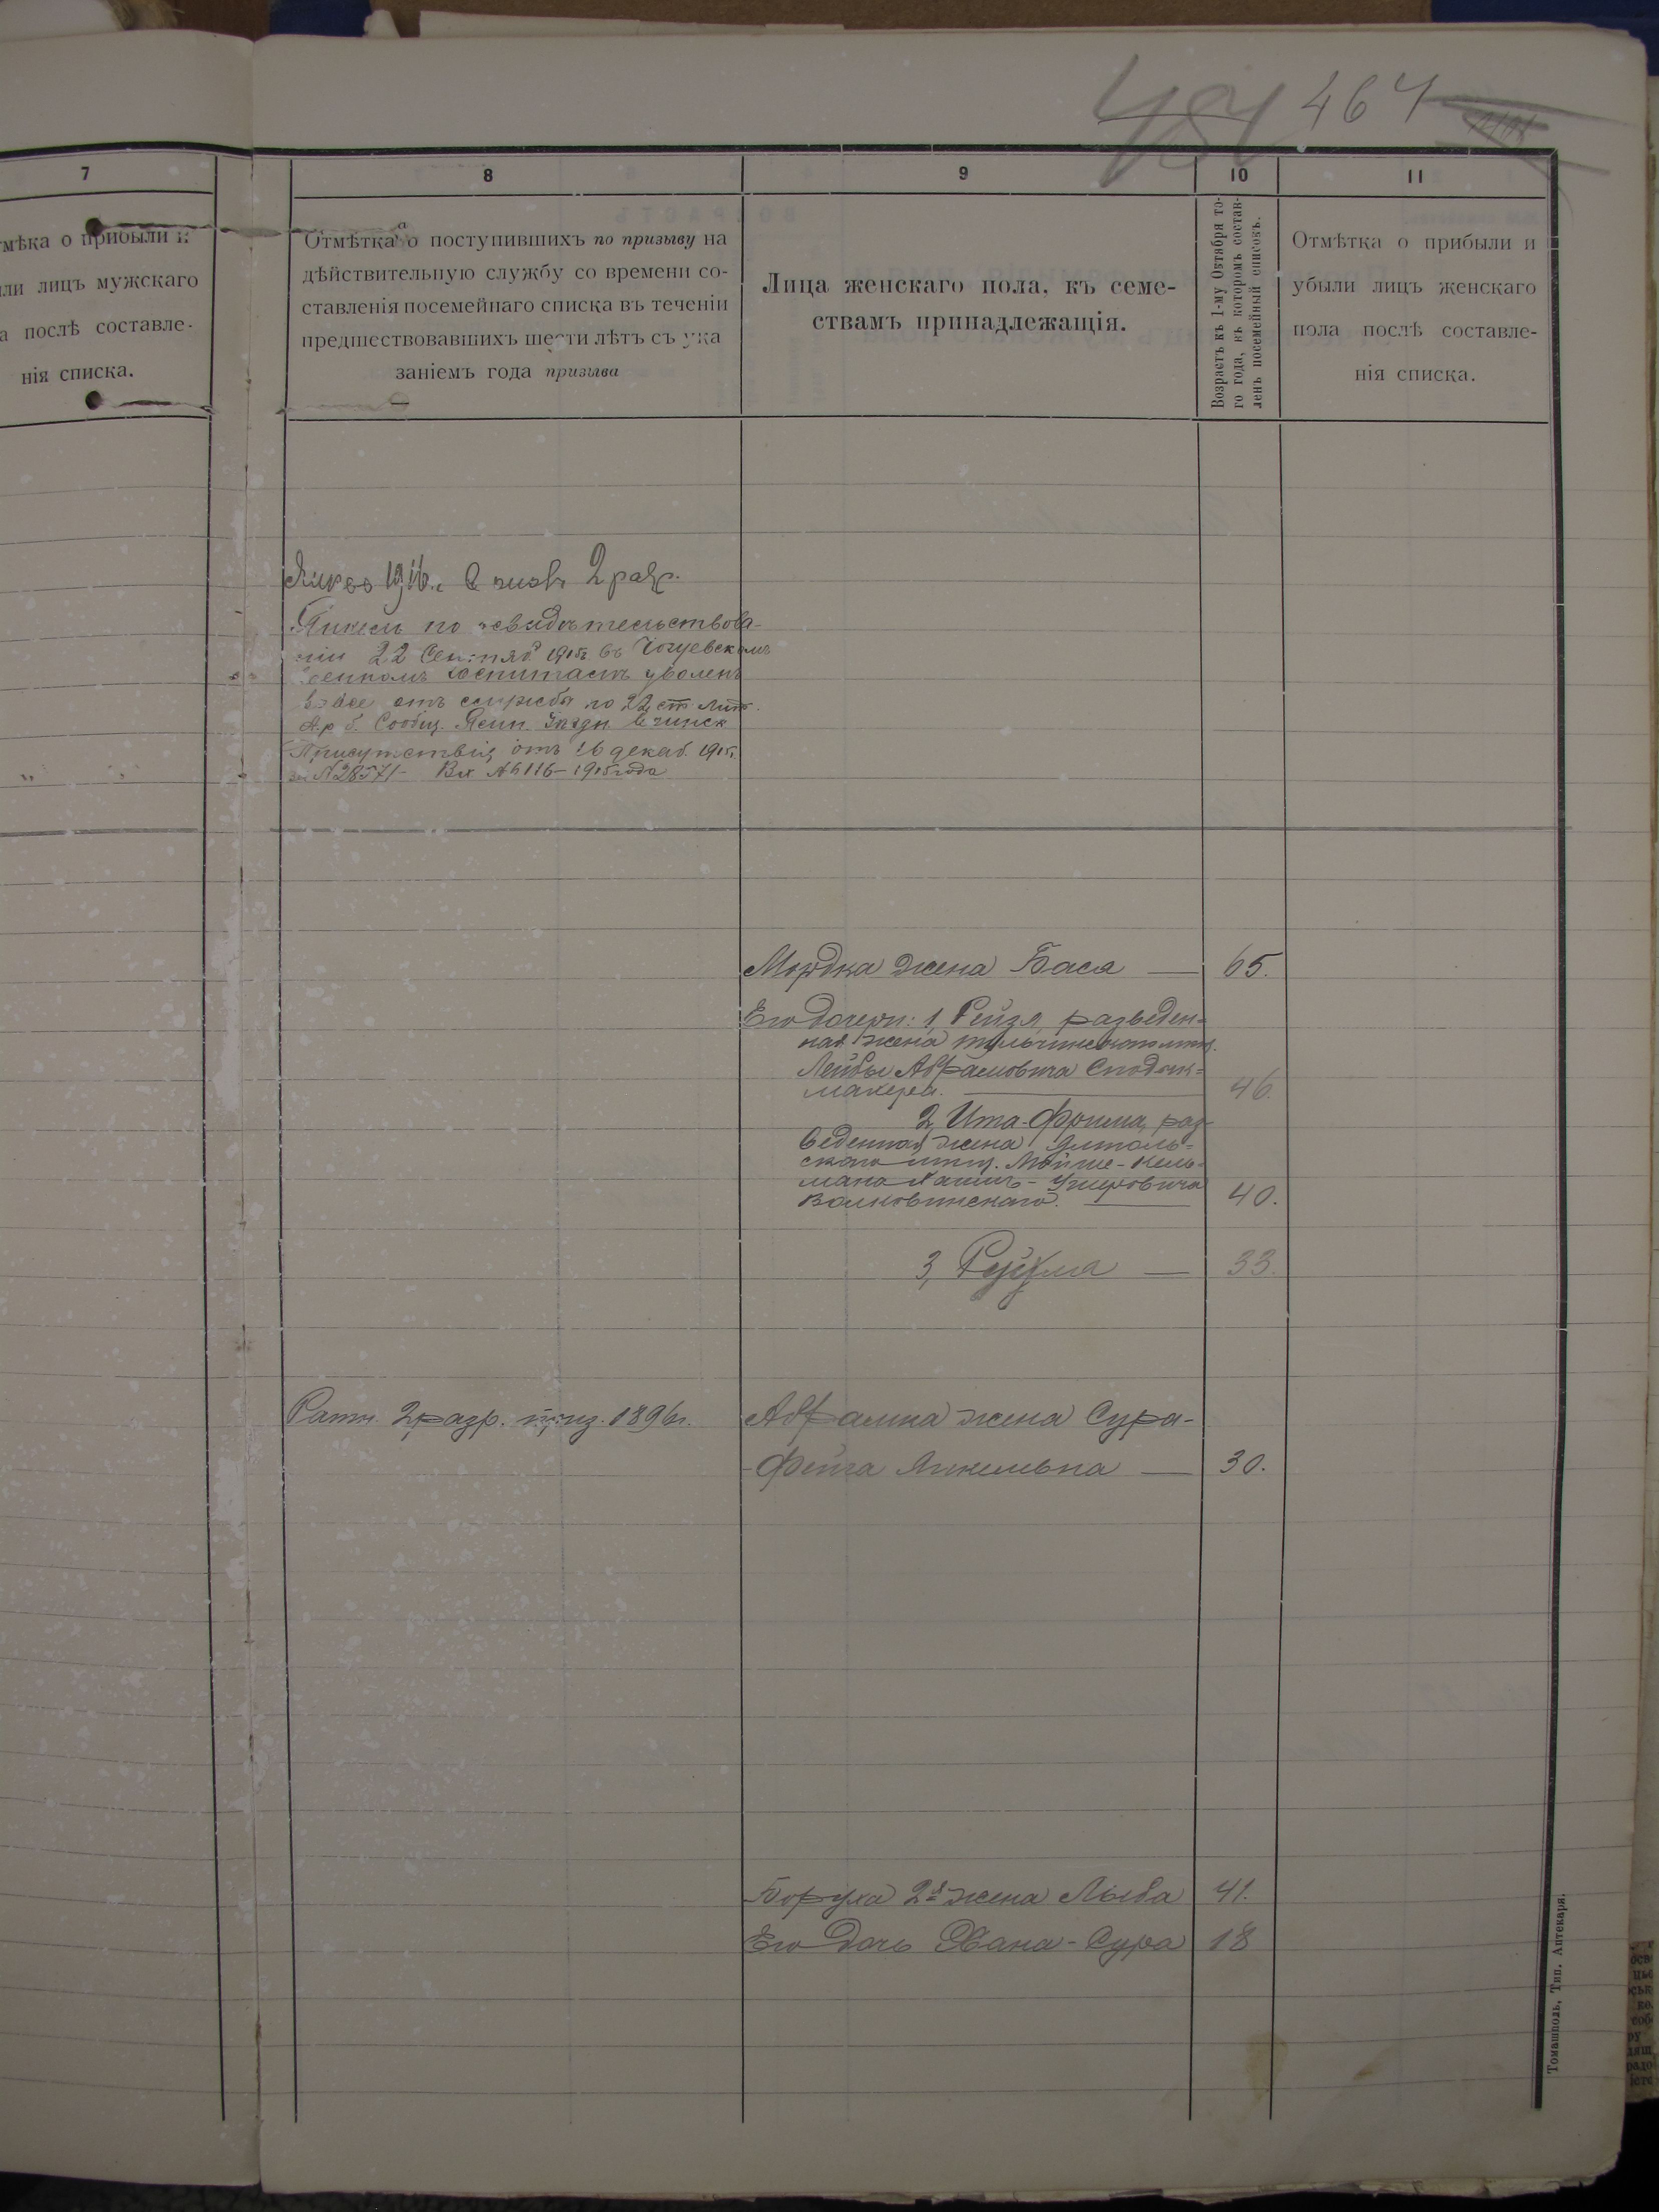 464
7
8
9
10
11
мѣка о прибыли и
или лицъ мужскаго
а послѣ составле-
нія списка.
Отмѣтка о поступившихъ по призыву на
дѣйствительную службу со времени со-
ставленія посемейнаго списка въ теченіи
предшествовавшихъ шести лѣтъ съ ука
заніемъ года призыва
Лица женскаго пола, къ семе-
ствамъ принадлежащія.
Возрастъ къ 1-му Октября то-
го года, въ которомъ состав-
ленъ посемейный списокъ.
Отмѣтка о прибыли и
убыли лицъ женскаго
пола послѣ составле-
нія списка.
1916. 2 разр.
Янкель по освидѣтельствова-
ніи 22 Сентяб 1915г. въ Чугуевскомъ
военномъ госпиталѣ уволенъ
вовсе отъ службы по 22 ст. Лит.
Сообщ. Ямп. Уѣздн. воинск
Присутствія отъ 16 декаб. 1915г.
за № 28571 - Вх № 116 - 1915 года
Мордка жена Бася — 65.
Его дочери: 1, Рейзя, разведен-
ная жена тульчинскаго мѣщ.
Лейбы Абрамовича Сподик-
махера. — 46.
2, Ита-Фрима, раз-
веденная жена Ямполь-
скаго мѣщ. Мойше-Кель-
мана
Волковинскаго. — 40.
3, — 33.
Ратн. 2 разр. приз. 1896г.
Абрамка жена Сура-
-Фейга Янкельвна — 30.
Боруха 2я жена Либа 41.
Его дочь Хана-Сура 18
Томашполь, Тип. Аптекаря.